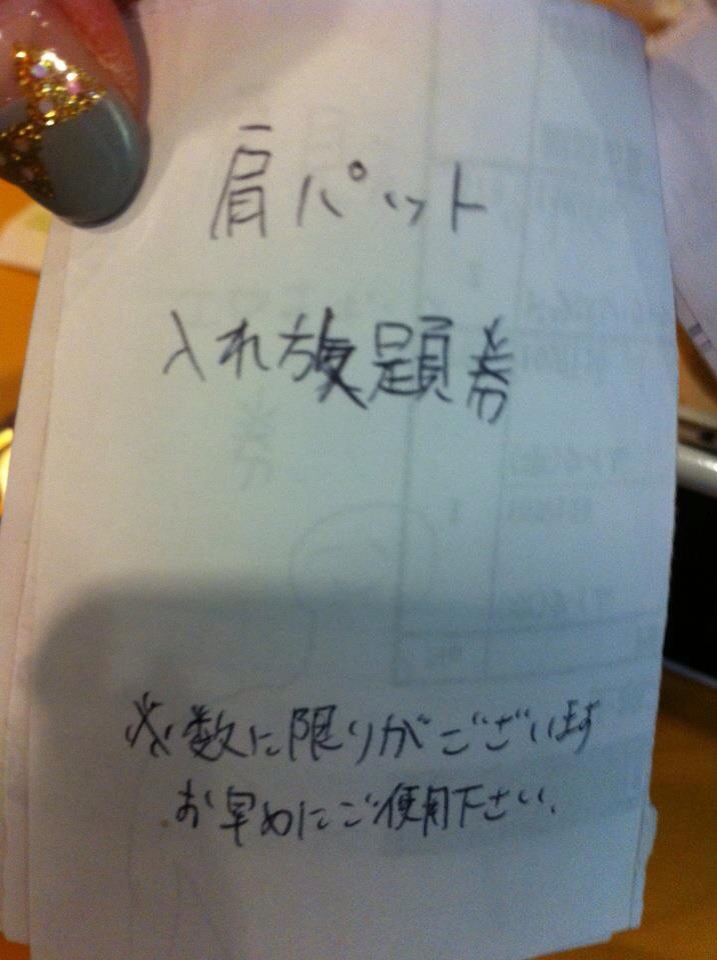 肩パット
入れ放題券
※数に限りがございます
お早めにご使用下さい、